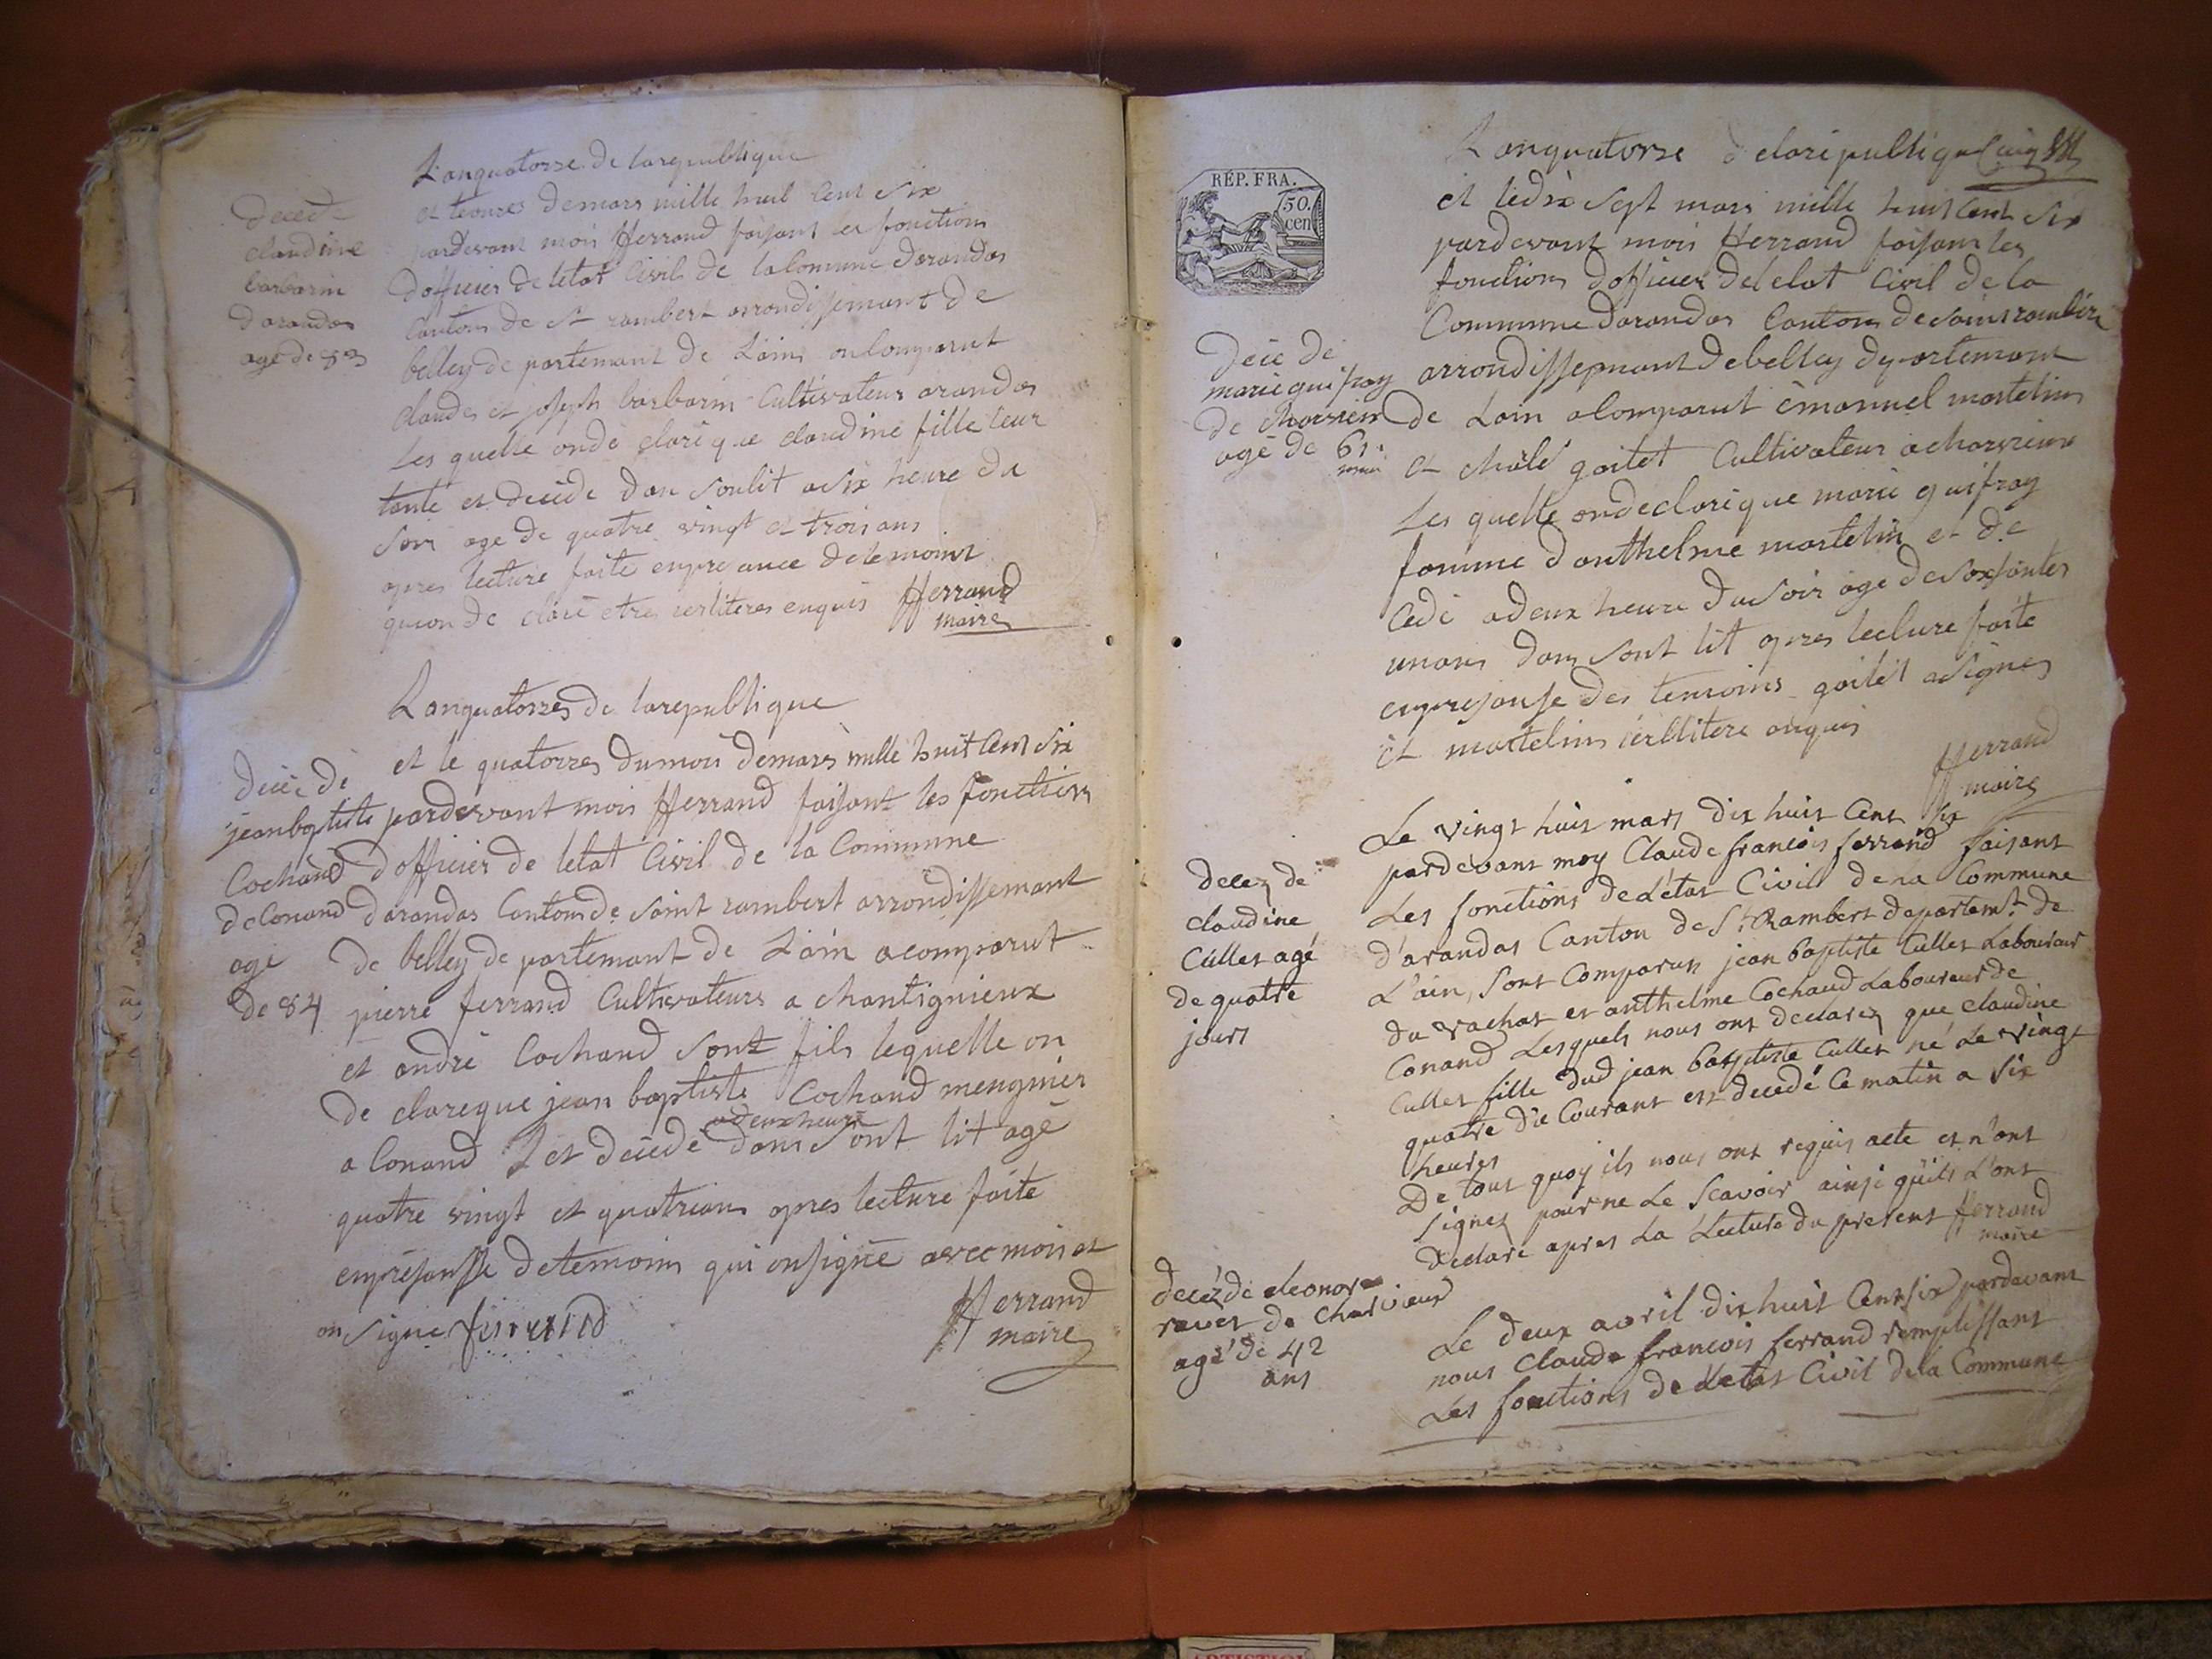 Lanquatorse de larepublique
et leonzes demars mille huit Cent Six
pardevant mois fferrand faisant les fonctions
dofficier deletat Civil de laComune darandas
Canton de St rambert arrondissemant de
belley de partemant de Lain on Comparut
claude et joseph barbarin Cultivateur arandas
Les quelle onde clari que claudine fille leur
tante et decede dan Sonlit asix heure du
Soir age de quatre vingt et trois ans
apres lecture faite enpresance detemoins
quion de claré etres enquis fferrand
maire
deced
claudine
barbarin
darandas
age de 83
Lanquatorzes de larepublique
et le quatorzes dumois demars mille huit Cent Six
pardevant mois fferrand faisant les fonction
dofficier de letat Civil de la Commune
darandas Canton de Saint rambert arrondissemant
de belley de partemant de Lain acomparut
pierre ferrand Cultivateurs a chantignieux
et andré Cochand Sont fils lequelle on
de clareque jean baptiste Cochand mengnier
adeuxheure
a Conand Set decede dans Sont lit agé
quatre vingt et quatrians apres lecture faite
enpresansse detemoins qui onsigné avec mois et
on Signe ferrand fferrand
maire
decé dé
jeanbaptiste
Cochand
deConand
agé
de 84
Lanquatorse delarepublique
et ledix Sept mars mille huit Cent Six
pardevant mois fferrand faisant les
fonctions dofficier deletat Civil de la
Commune darandas Canton de Saint rambert
arrondissemant debelley departemant
de Lain a Comparut èmanuel martelin
et goitet Cultivateur acharvieux
Les quelle ondeclarique marie guifray
famme d'anthelme martelin et de
Cedé adeux heure duSoir age deSoxsantes
unans dans Sont lit apres lecture faite
enpresansse des temoins goitet asignes
et martelin enquis
fferrand
maire
RÉP. FRA.
50.
cen
decé de
marie guifray
de charvieux
age de 61
Le vingt huit mars dix huit Cent Six
pardevant moy Claude francois ferrand faisant
Les fonctions deL'état Civil de La Commune
d'arandas Canton de St Rambert departemt. de
L'ain, Sont Comparus jean baptiste Cullet Laboureur
du vachat et anthelme Cochaud Laboureur de
Conand Lesquels nous ont declarez que claudine
Cullet fille dud jean baptiste Cullet né Le vingt
quatre du Courant est decedé Ce matin a Six
heures
De tout quoy ils nous ont requis acte et n'ont
Signez pour ne Le Scavoir ainsi qu'ils L'ont
declaré apres La Lecture du present fferrand
maire
decez de
claudine
Cullet agé
de quatre
jours
Le deux avril dix huit Cent six pardevant
nous Claude francois ferrand remplissant
Les fonctions de L'etat Civil dela Commune
decéz de eleonor
ravet de Charvieux
agé de 42
ans